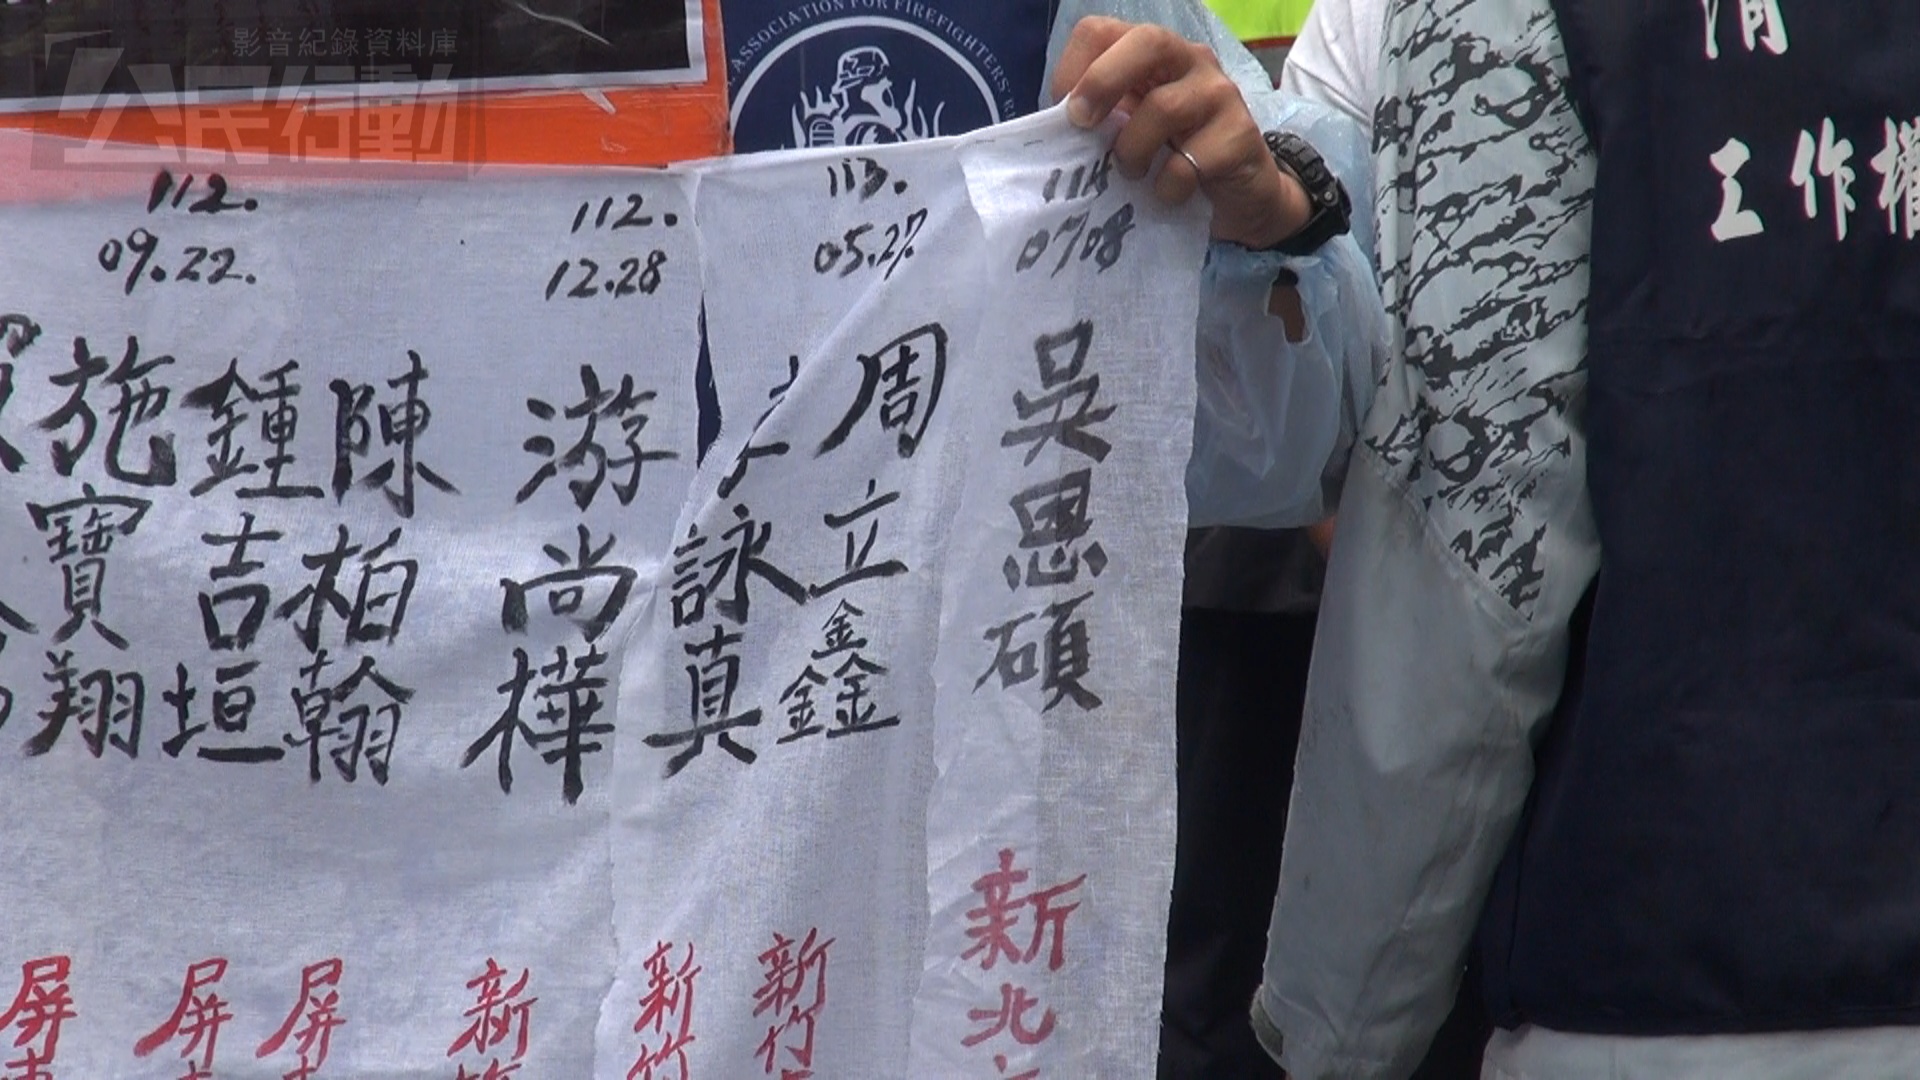 影音紀錄資料庫
公民行動
ASSOCIATION FOR FIREFIGHTERS'
工作權
112.
09.22.
112.
12.28
113.
05.27.
114
07.08
施寶翔
鍾吉垣
陳柏翰
游尚樺
詠真
周立鑫
吳思碩
屏東
屏
屏
新竹
新竹
新竹
新北